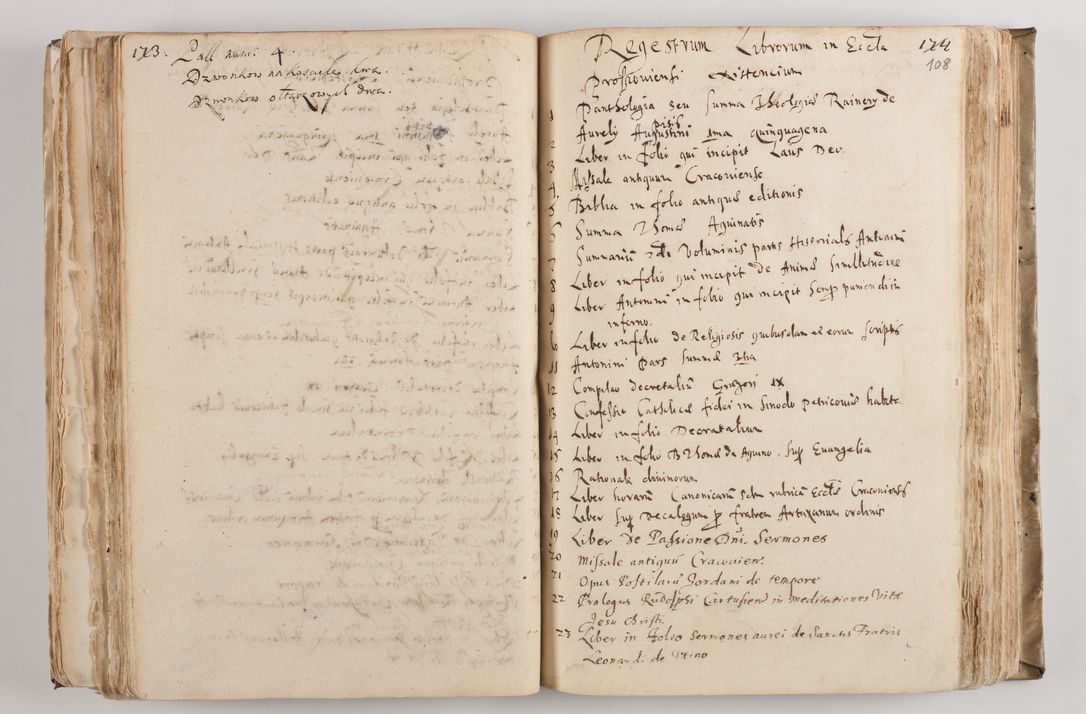 173.
Pall numi: 4
Dzwonkow na kosciele kwa.
Dzwonkow ołtarzowych dwa.
174
108
Regestrum Librorum in Eccla
existencium
1 Panthologia seu summa Theologiae Rainery de pisis
2 Aurely Augustini 1ma quinquagena
3 Liber in folio qui incipit Laus Deo.
4 Missale antiquum Cracoviense
5 Biblia in folio antiquae editionis
6 Summa Thomae Aquinatis
7 Summariū 2di Voluminis partis Historialis Antonini
8 Liber in folio qui incipit de Animae similitudine
9 Liber Antonini in folio qui incipit
inferno.
10 Liber in folio de Religiosis quibusdam et eorum scriptis
11 Antonini Pars summae 3tia
12 Compilao decretaliū Gregori IX
13 Confessio Catholicae fidei in sinodo petricoviae habita
14 Liber in folio Decretalium
15 Liber in folio B Thomae de Aquino. sup Evangelia
16 Rationale divinorum
17 Liber horarū Canonicarū scdm rubricā Eccles Cracoviensis
18 Liber sup decalogum p fratrem ordinis
19 Liber De Passione Dni. Sermones
20 Missale antiquū Cracovien:
21 Opus Postilarū Jordani de tempore
22 Prologus Rudolphi Cartusien in meditationes Vitae
Jesu Christi.
23 Liber in Folio Sermones aurei de Sanctis Fratris
Leonardi de Utino